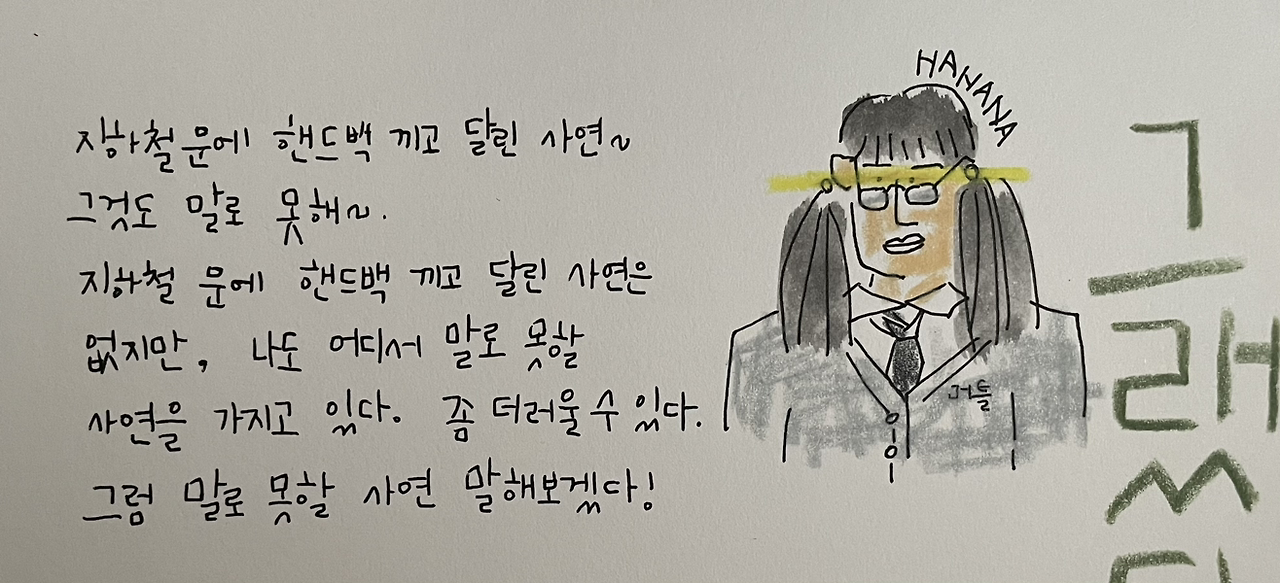 지하철 문에 핸드백 끼고 달린 사연~
그것도 말로 못해~.
지하철 문에 핸드백 끼고 달린 사연은
없지만, 나도 어디서 말로 못할
사연을 가지고 있다. 좀 더러울 수 있다.
그럼 말로 못할 사연 말해보겠다!
HAHAHA
거들
그랬